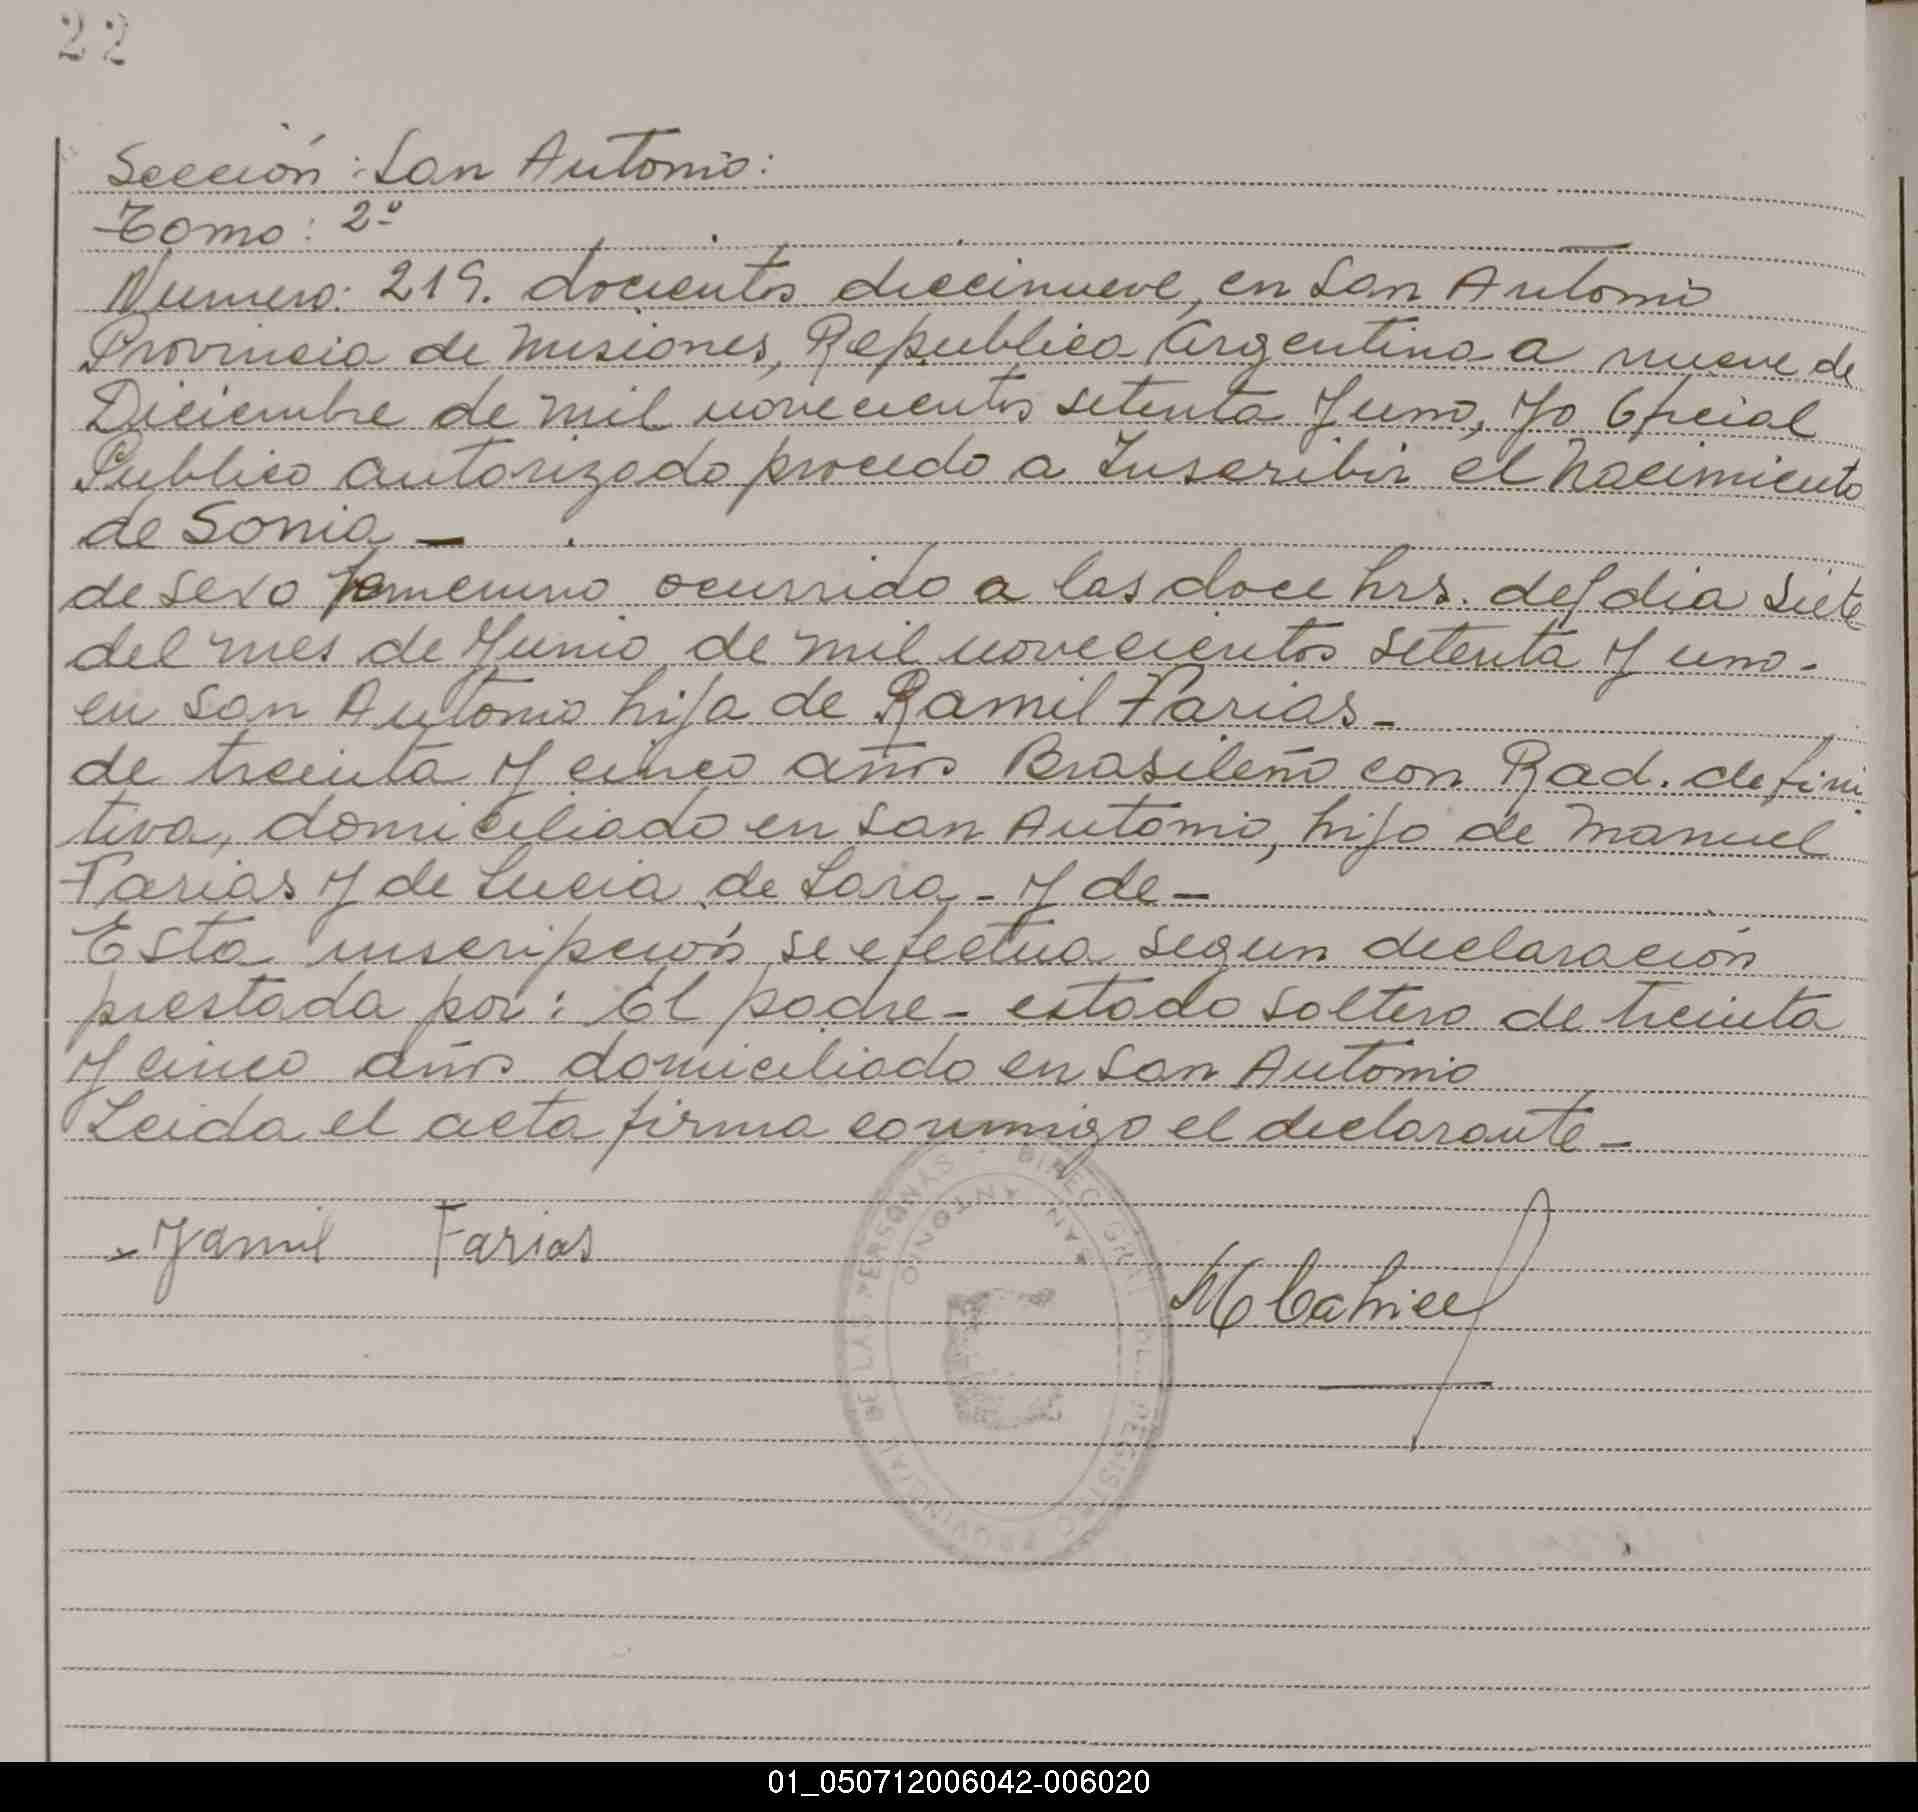 22
Sección: San Antonio:
Tomo: 2º
Numero: 219. docientos diecinueve, en San Antonio
Provincia de Misiones, Republica Argentina a nueve de
Diciembre de mil novecientos setenta y uno, yo Oficial
Publico autorizado procedo a Inscribir el Nacimiento
de Sonia -
de sexo femenino ocurrido a las doce hrs. del dia siete
del mes de Junio de mil novecientos setenta y uno.
en San Antonio hija de Ramil Farias -
de treinta y cinco años Brasileño con Rad. defini
tiva, domiciliado en San Antonio, hijo de Manuel
Farias y de Lucia de Lara - y de -
Esta inscripción se efectua segun declaración
prestada por: El padre - estado soltero de treinta
y cinco años domiciliado en San Antonio
Leida el acta firma conmigo el declarante -
Farias
DE LAS PERSONAS · DIREC. GRAL. DEL REGISTRO PROVINCIAL
SAN ANTONIO
01_050712006042-006020